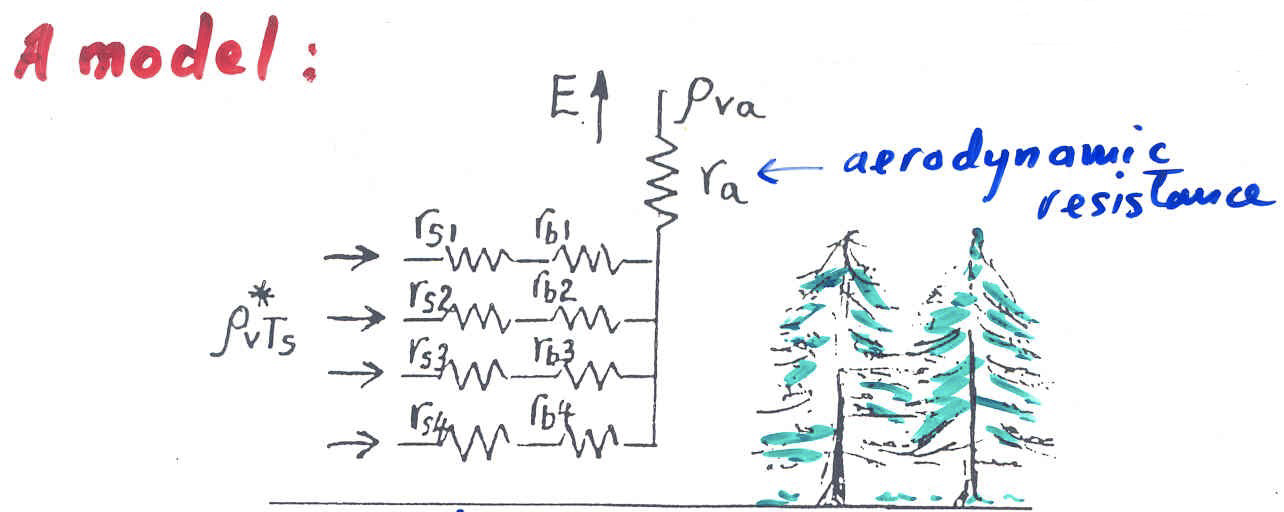 A model:
E ρva
ra ← aerodynamic
resistance
rs1 rb1
rs2 rb2
ρ*vTs
rs3 rb3
rs4 rb4